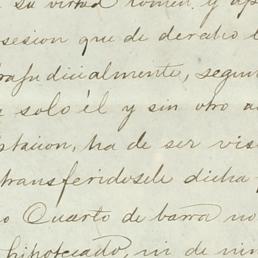 su virtud tomen y ap
sesion que de derecho l
trajudicialmente, segun
solo él y sin otro a
ptacion, ha de ser vis
transferidosele dicha
o Cuarto de barra no
hipotecado, ni de nin